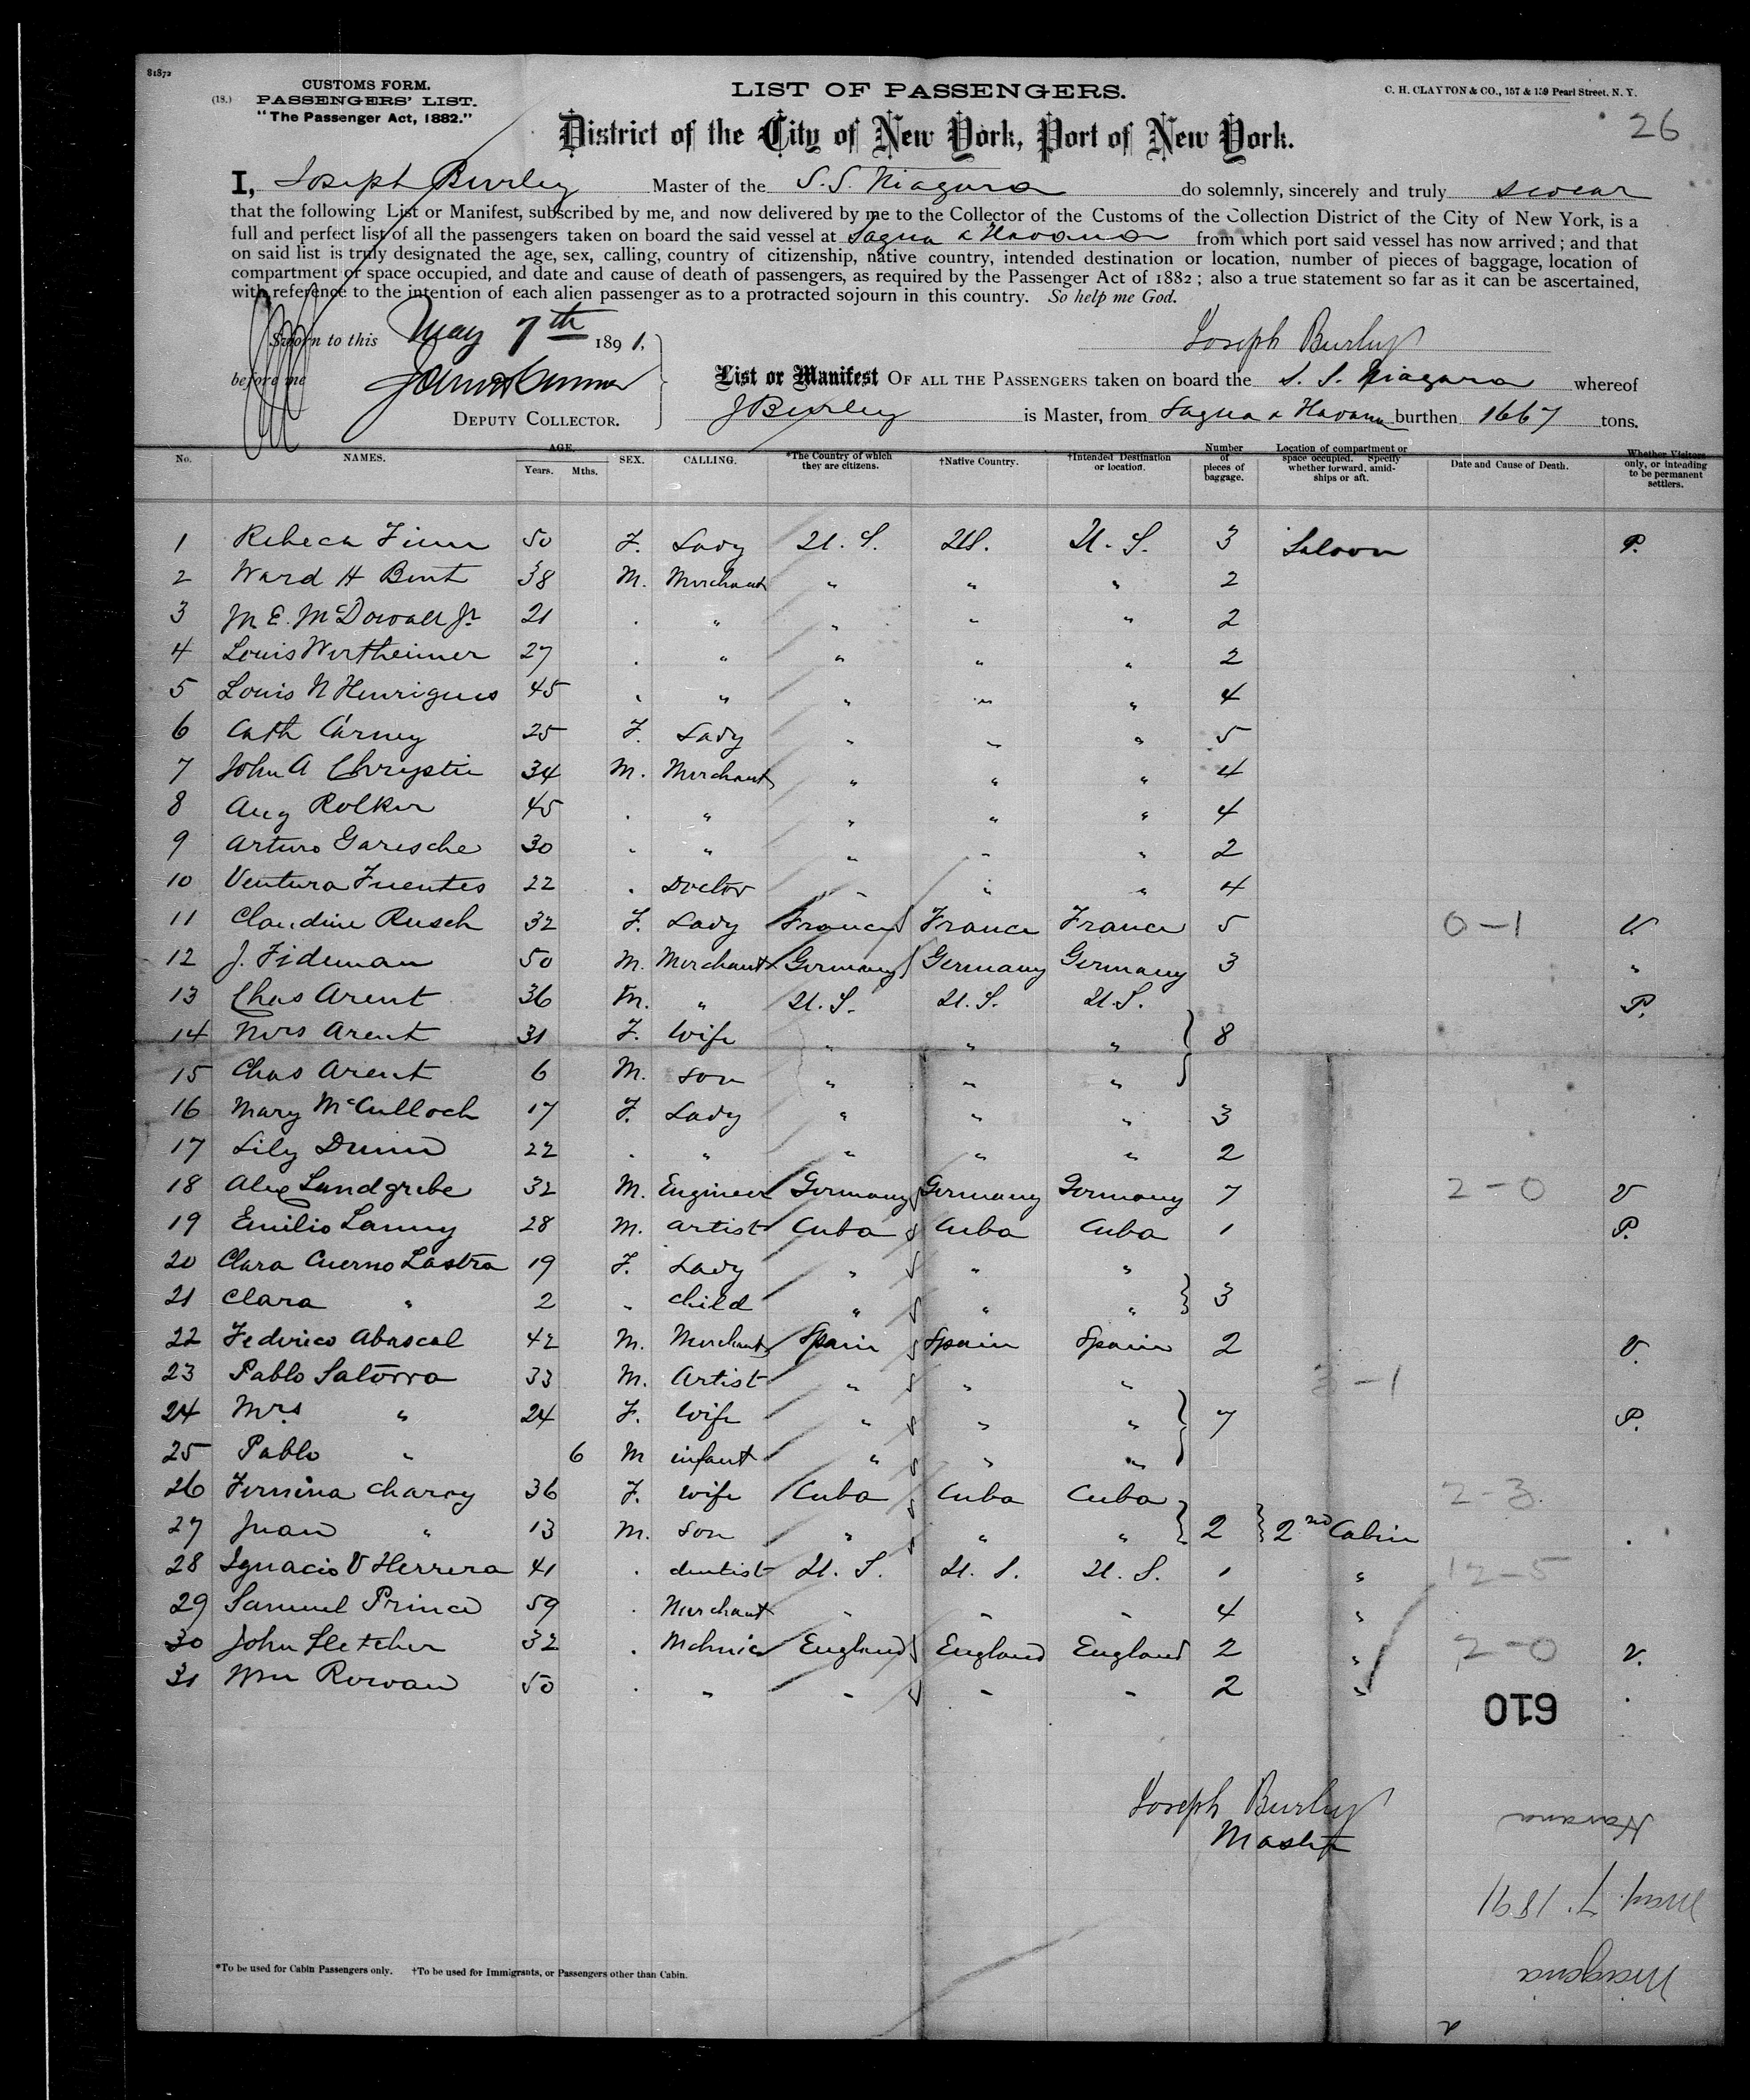 81872
CUSTOMS FORM.
(18.) PASSENGERS' LIST.
"The Passenger Act, 1882."
LIST OF PASSENGERS.
C. H. CLAYTON & CO., 157 & 159 Pearl Street, N. Y.
26
District of the City of New York, Port of New York.
I, Joseph Burley Master of the S.S. Niagara do solemnly, sincerely and truly swear
that the following List or Manifest, subscribed by me, and now delivered by me to the Collector of the Customs of the Collection District of the City of New York, is a
full and perfect list of all the passengers taken on board the said vessel at Sagua & Havana from which port said vessel has now arrived; and that
on said list is truly designated the age, sex, calling, country of citizenship, native country, intended destination or location, number of pieces of baggage, location of
compartment or space occupied, and date and cause of death of passengers, as required by the Passenger Act of 1882; also a true statement so far as it can be ascertained,
with reference to the intention of each alien passenger as to a protracted sojourn in this country. So help me God.
Sworn to this May 7th 1891.
Joseph Burley
before me
DEPUTY COLLECTOR.
List or Manifest OF ALL THE PASSENGERS taken on board the S. S. Niagara whereof
J Burley is Master, from Sagua & Havana burthen 1667 tons.
No. NAMES. AGE. Years. Mths. SEX. CALLING. *The Country of which they are citizens. †Native Country. †Intended Destination or location. Number of pieces of baggage. Location of compartment or space occupied. Specify whether forward, amidships or aft. Date and Cause of Death. Whether Visitors only, or intending to be permanent settlers.
1 Rebeca Finn 50 F. Lady U. S. US. U. S. 3 Saloon P.
2 Ward H Bent 38 M. Merchant " " " 2
3 M E. McDowall Jr 21 . " " " " 2
4 Louis Wertheimer 27 . " " " " 2
5 Louis N Henriques 45 " " " " " 4
6 Cath Carney 25 F. Lady " " " 5
7 John A Chrystie 34 M. Merchant " " " 4
8 Aug Rolker 45 . " " " " 4
9 Arturo Garesche 30 " " " " " 2
10 Ventura Fuentes 22 . Doctor " " " 4
11 Claudine Rusch 32 F. Lady France France France 5 0-1 V.
12 J. Fideman 50 M. Merchant Germany Germany Germany 3 "
13 Chas Arent 36 M. " U. S. U. S. U. S. P.
14 Mrs Arent 31 F. Wife " " " } 8
15 Chas Arent 6 M. Son " " "
16 Mary McCulloch 17 F. Lady " " " 3
17 Lily Dunn 22 . " " " " 2
18 Alex Landgrebe 32 M. Engineer Germany Germany Germany 7 2-0 V
19 Emilio Lanuy 28 M. Artist Cuba Cuba Cuba 1 P.
20 Clara Cuerno Lastra 19 F. Lady " " "
21 Clara " 2 " Child " " " } 3
22 Federico Abascal 42 M. Merchant Spain Spain Spain 2 V.
23 Pablo Satorra 33 M. Artist " " " 3-1
24 Mrs " 24 F. Wife " " " } 7 P.
25 Pablo " 6 M infant " " "
26 Fermina Charoy 36 F. Wife Cuba Cuba Cuba 2-3.
27 Juan " 13 M. Son " " " } 2 } 2nd Cabin .
28 Ignacio V Herrera 41 . dentist U. S. U. S. U. S. 1 " 12-5
29 Samuel Prince 59 . Merchant " " " 4 "
30 John Fletcher 32 . England England England 2 " 2-0 V.
31 Wm Rowan 50 . " " " " 2 " .
610
Joseph Burley
Master
Havana
May. 7. 1891
Niagara
*To be used for Cabin Passengers only. †To be used for Immigrants, or Passengers other than Cabin.